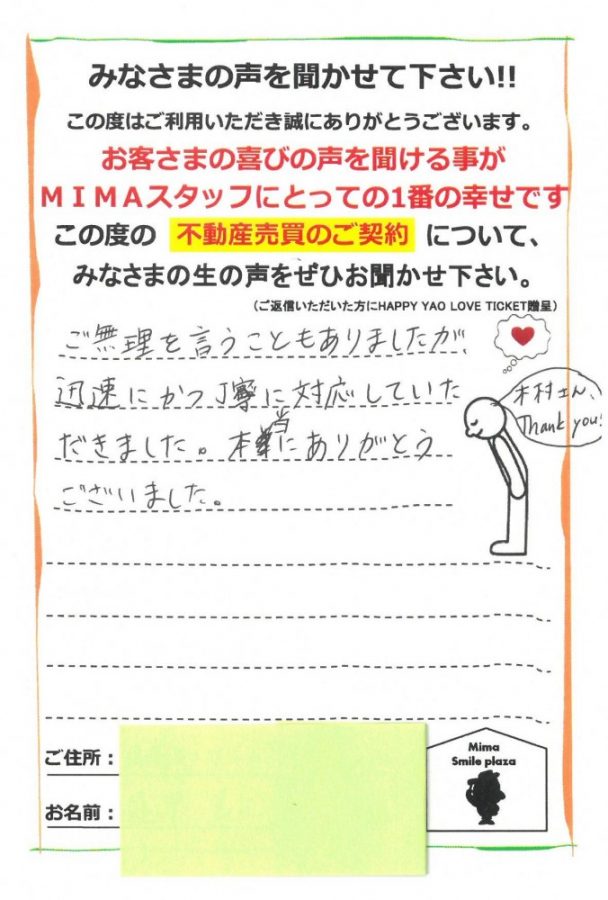 みなさまの声を聞かせて下さい!!
この度はご利用いただき誠にありがとうございます。
お客さまの喜びの声を聞ける事が
MIMAスタッフにとっての1番の幸せです
この度の 不動産売買のご契約 について、
みなさまの生の声をぜひお聞かせ下さい。
(ご返信いただいた方にHAPPY YAO LOVE TICKET贈呈)
ご無理を言うこともありましたが、
迅速にかつ丁寧に対応していた
だきました。本当にありがとう
ございました。
木村さん、
Thank you!
ご住所:
お名前:
Mima
Smile plaza